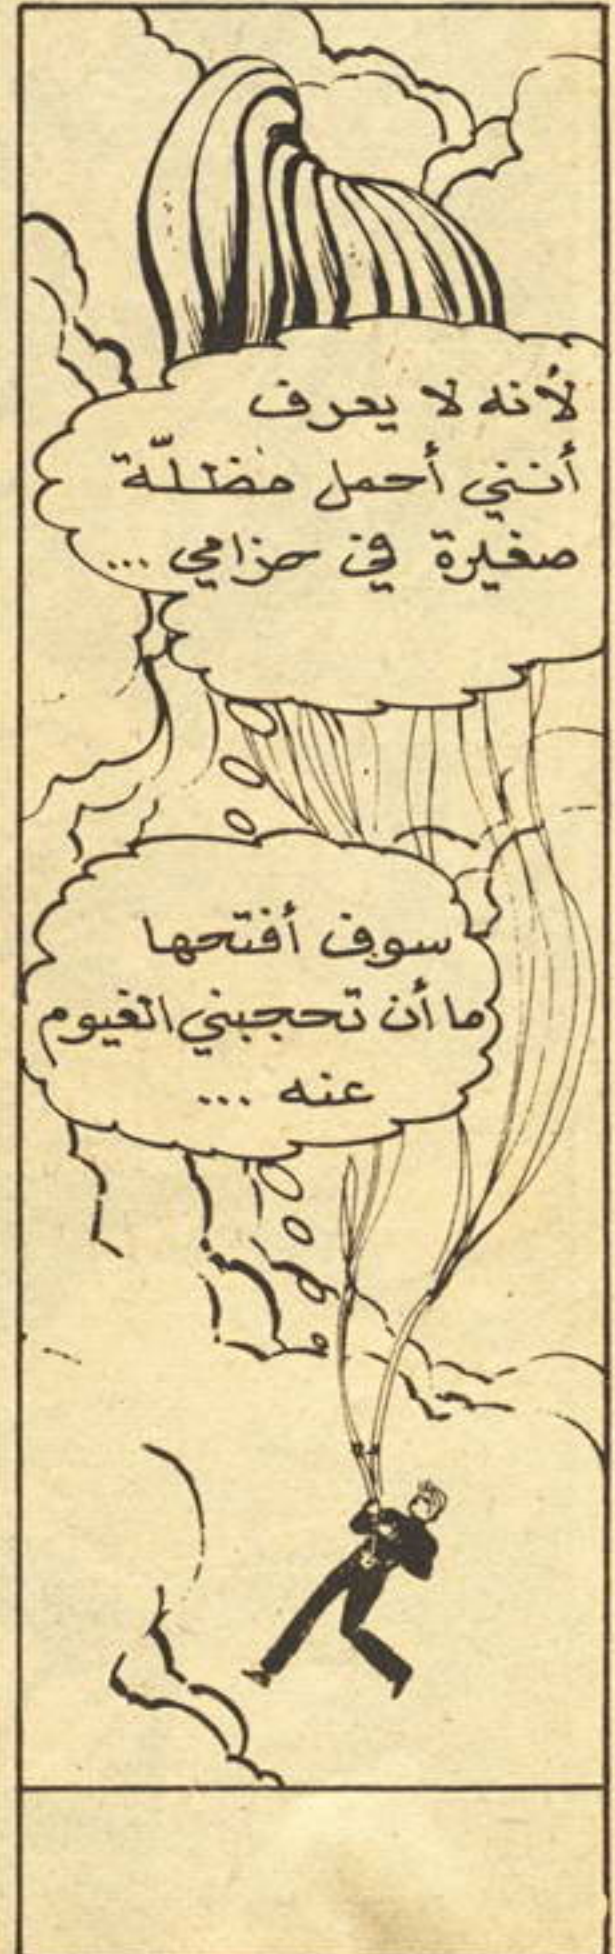 لأنه لا يعرف
أنني أحمل مظلّة
صغيرة في حزامي ...
سوف أفتحها
ما أن تحجبني الغيوم
عنه ...